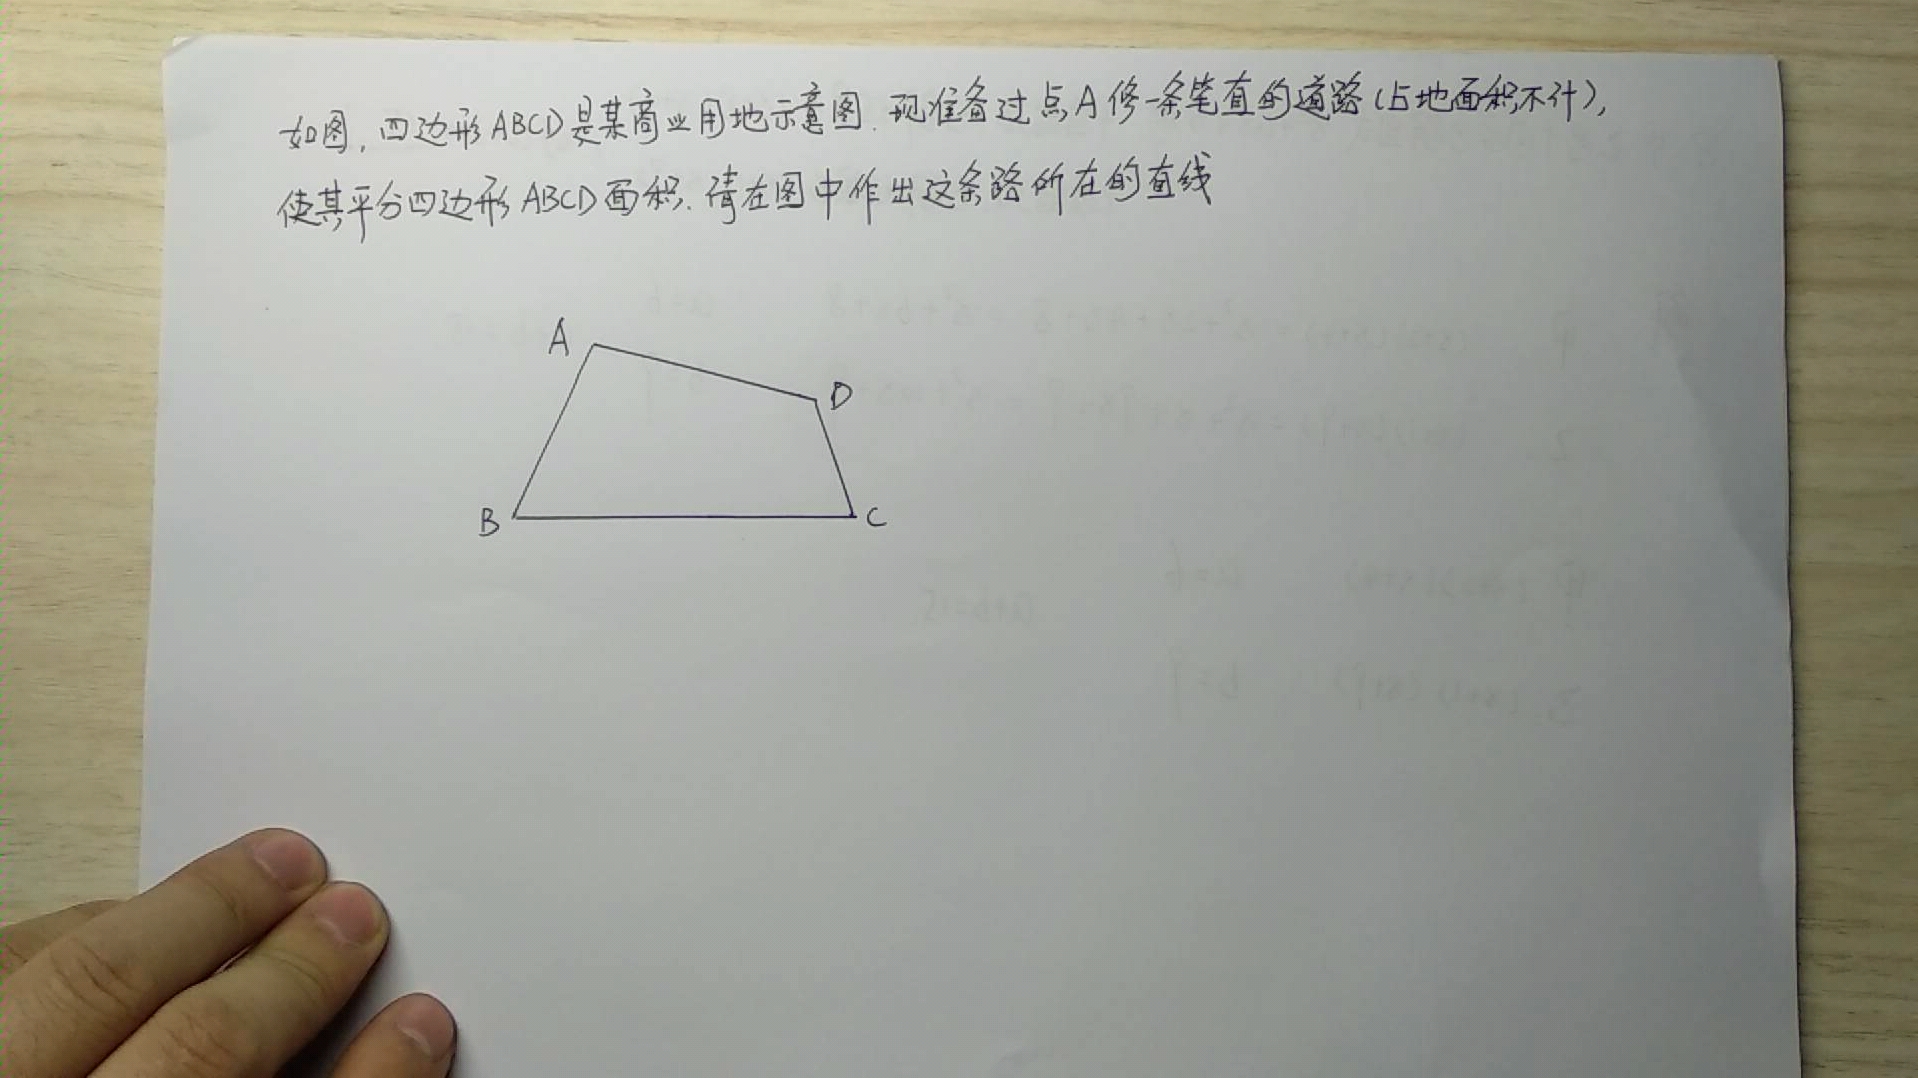 如图,四边形ABCD是某商业用地示意图.现准备过点A修一条笔直的道路(占地面积不计),
使其平分四边形ABCD面积.请在图中作出这条路所在的直线
A
D
B
C